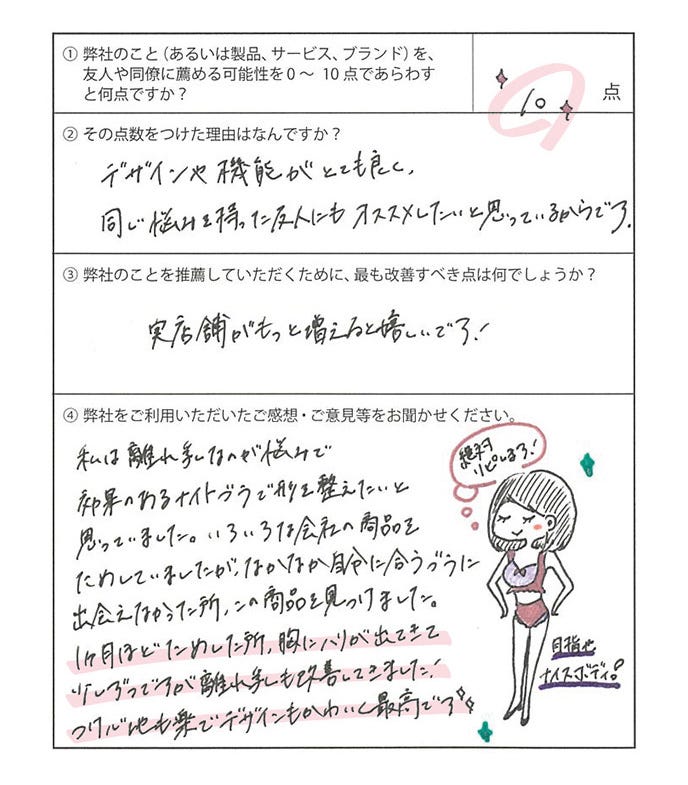 ① 弊社のこと（あるいは製品、サービス、ブランド）を、
友人や同僚に薦める可能性を0～ 10点であらわす
と何点ですか？
10 点
② その点数をつけた理由はなんですか？
デザインや機能がとても良く、
同じ悩みを持った友人にもオススメしたいと思っているからです。
③ 弊社のことを推薦していただくために、最も改善すべき点は何でしょうか？
実店舗がもっと増えると嬉しいです！
④ 弊社をご利用いただいたご感想・ご意見等をお聞かせください。
私は離れ乳なのが悩みで
効果のあるナイトブラで形を整えたいと
思っていました。いろいろな会社の商品を
ためしていましたが、なかなか自分に合うブラに
出会えなかった所、この商品を見つけました。
1ヶ月ほどためした所、胸にハリが出てきて
少しずつですが離れ乳も改善してきました！
つけ心地も楽でデザインもかわいく最高です
絶対
リピします！
目指せ
ナイスボディ！